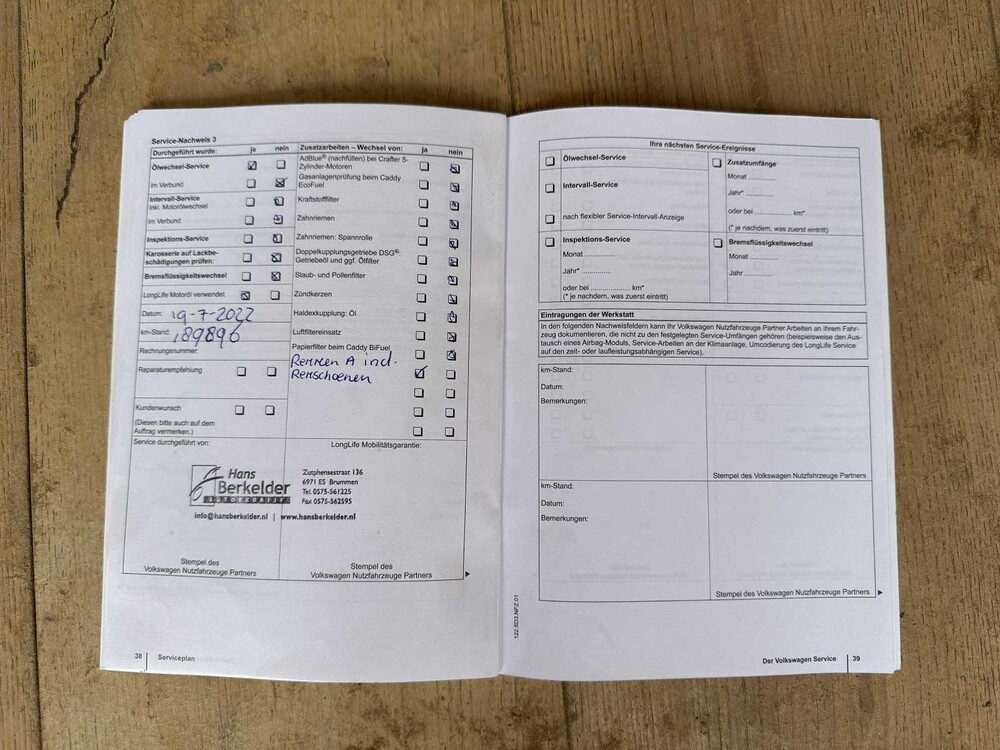 Service-Nachweis 3
Durchgeführt wurde: ja nein
Ölwechsel-Service
im Verbund
Intervall-Service
inkl. Motorölwechsel
im Verbund
Inspektions-Service
Karosserie auf Lackbe-
schädigungen prüfen:
Bremsflüssigkeitswechsel
LongLife Motoröl verwendet
Datum: 19-7-2022
km-Stand: 189896
Rechnungsnummer:
Reparaturempfehlung
Kundenwunsch
(Diesen bitte auch auf dem
Auftrag vermerken.)
Service durchgeführt von:
Zusatzarbeiten – Wechsel von: ja nein
AdBlue® (nachfüllen) bei Crafter 5-
Zylinder-Motoren
Gasanlagenprüfung beim Caddy
EcoFuel
Kraftstofffilter
Zahnriemen
Zahnriemen: Spannrolle
Doppelkupplungsgetriebe DSG®:
Getriebeöl und ggf. Ölfilter
Staub- und Pollenfilter
Zündkerzen
Haldexkupplung: Öl
Luftfiltereinsatz
Papierfilter beim Caddy BiFuel
Remmen A incl.
Remschoenen
LongLife Mobilitätsgarantie:
Hans
Berkelder
AUTOBEDRIJF
Zutphensestraat 136
6971 ES Brummen
Tel. 0575-561225
Fax 0575-562595
info@hansberkelder.nl | www.hansberkelder.nl
Stempel des
Volkswagen Nutzfahrzeuge Partners
Stempel des
Volkswagen Nutzfahrzeuge Partners
38 Serviceplan
Ihre nächsten Service-Ereignisse
Ölwechsel-Service
Intervall-Service
nach flexibler Service-Intervall-Anzeige
Inspektions-Service
Monat ............
Jahr* ............
oder bei ........................ km*
(* je nachdem, was zuerst eintritt)
Zusatzumfänge
Monat .........
Jahr* .........
oder bei ............... km*
(* je nachdem, was zuerst eintritt)
Bremsflüssigkeitswechsel
Monat .........
Jahr .........
Eintragungen der Werkstatt
In den folgenden Nachweisfeldern kann Ihr Volkswagen Nutzfahrzeuge Partner Arbeiten an Ihrem Fahr-
zeug dokumentieren, die nicht zu den festgelegten Service-Umfängen gehören (beispielsweise den Aus-
tausch eines Airbag-Moduls, Service-Arbeiten an der Klimaanlage, Umcodierung des LongLife Service
auf den zeit- oder laufleistungsabhängigen Service).
km-Stand:
Datum:
Bemerkungen:
Stempel des Volkswagen Nutzfahrzeuge Partners
km-Stand:
Datum:
Bemerkungen:
Stempel des Volkswagen Nutzfahrzeuge Partners
122.5D3.NFZ.01
Der Volkswagen Service 39